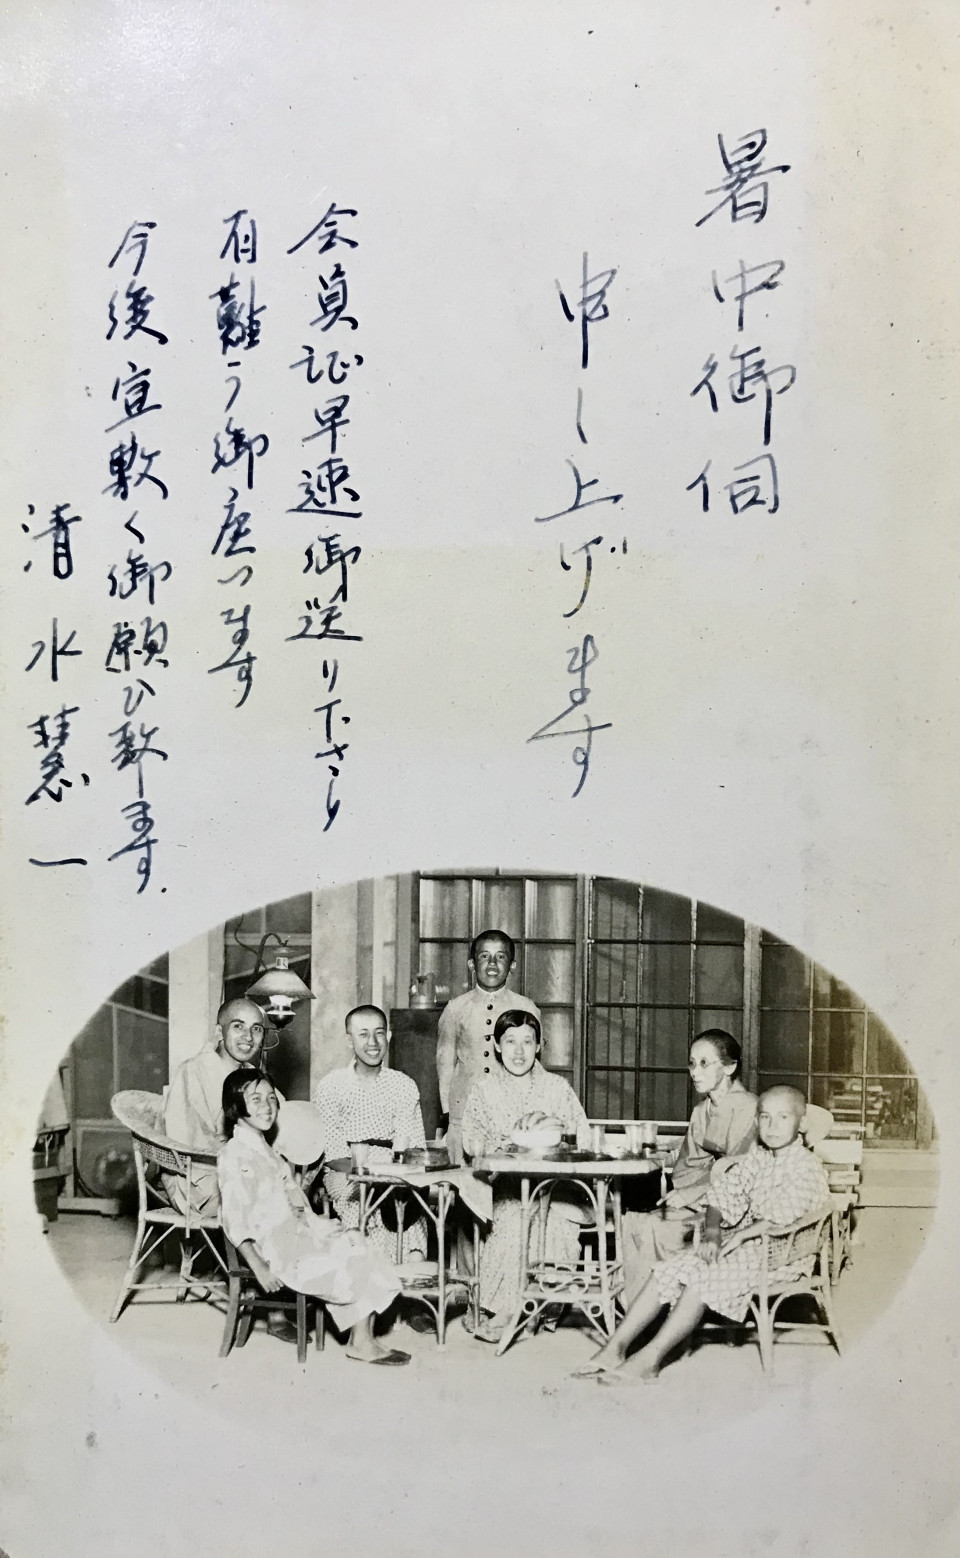 暑中御伺
申し上げます
会員証早速御送り下さり
有難う御座います
今後宜敷く御願ひ致ます.
清水慧一